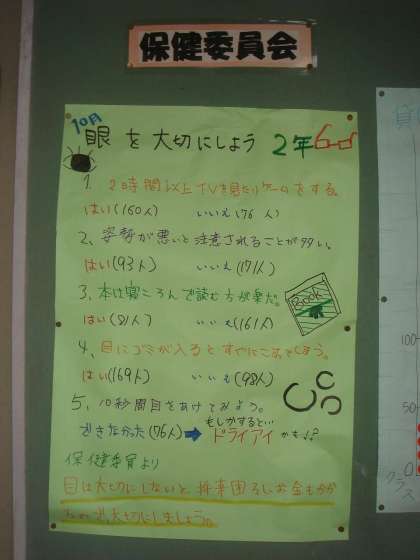 保健委員会
10月
眼を大切にしよう 2年
1. 2時間以上TVを見たりゲームをする。
はい(160人) いいえ(76人)
2、姿勢が悪いと注意されることが多い。
はい(93人) いいえ(171人)
3、本は寝ころんで読む方が楽だ。
Book
はい(81人) いいえ(161人)
4、目にゴミが入るとすぐにこすってしまう。
はい(169人) いいえ(98人)
5、10秒間目をあけてみよう。
もしかすると…
できなかった(76人)➡ドライアイかも!?
保健委員より
目は大切にしないと、将来困るしお金もかか
大切にしましょう。
100
50
0
クラス